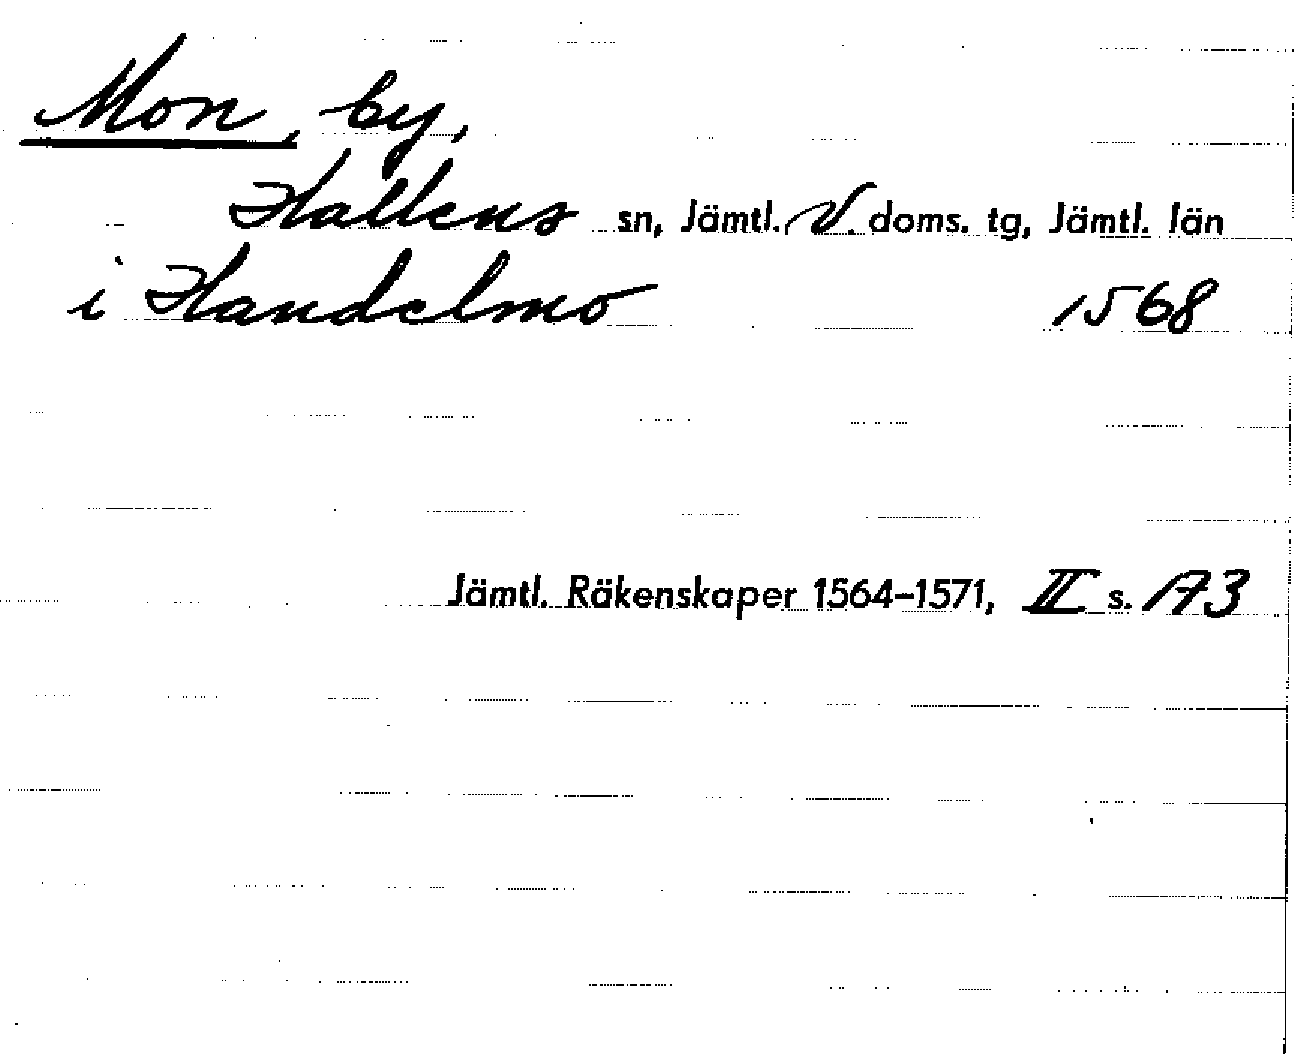 Mon, by,
Hallens sn, Jämtl. V. doms. tg, Jämtl. län
i Handelmo 1568
Jämtl. Räkenskaper 1564–1571, II s. 173